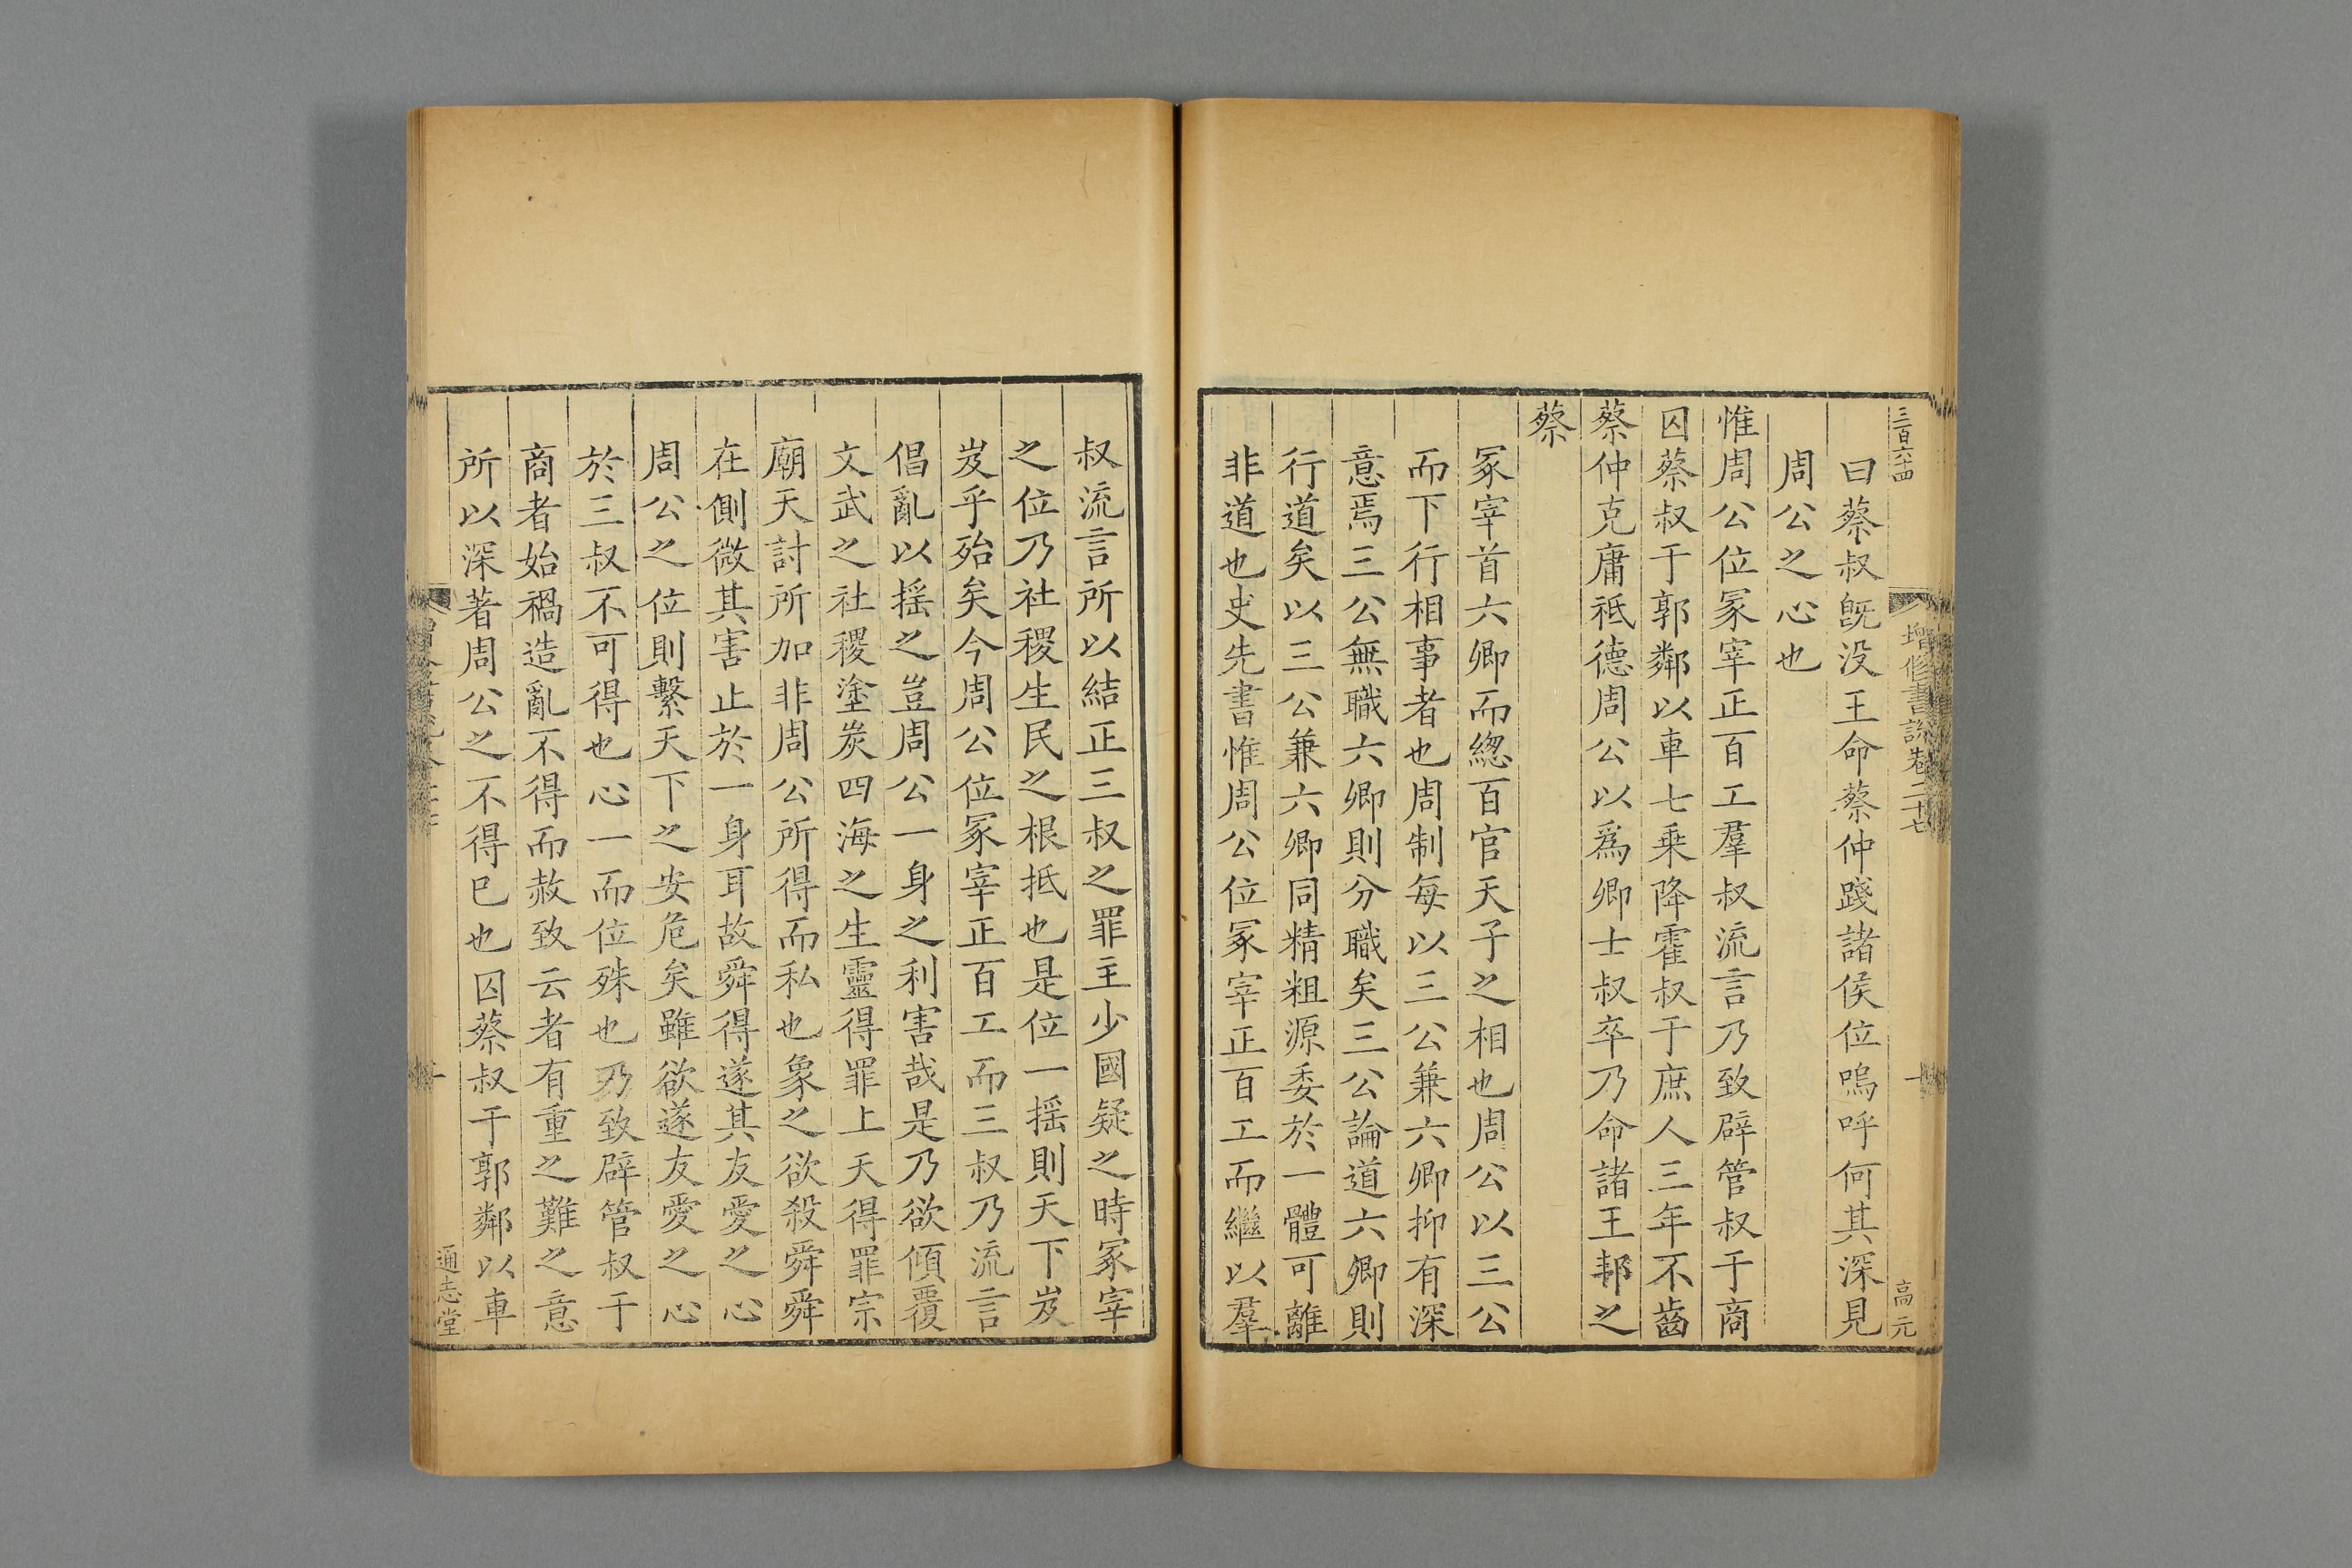 三百六十四
增修書説卷二十七
十
高元
曰蔡叔既没王命蔡仲踐諸侯位嗚呼何其深見
周公之心也
惟周公位冢宰正百工羣叔流言乃致辟管叔于商
囚蔡叔于郭鄰以車七乗降霍叔于庶人三年不齒
蔡仲克庸祗德周公以爲卿士叔卒乃命諸王邦之
蔡
冢宰首六卿而緫百官天子之相也周公以三公
而下行相事者也周制每以三公兼六卿抑有深
意焉三公無職六卿則分職矣三公論道六卿則
行道矣以三公兼六卿同精粗源委於一體可離
非道也史先書惟周公位冢宰正百工而繼以羣
叔流言所以結正三叔之罪主少國疑之時冢宰
之位乃社稷生民之根抵也是位一揺則天下岌
岌乎殆矣今周公位冢宰正百工而三叔乃流言
倡亂以揺之豈周公一身之利害哉是乃欲傾覆
文武之社稷塗炭四海之生靈得罪上天得罪宗
廟天討所加非周公所得而私也象之欲殺舜舜
在側微其害止於一身耳故舜得遂其友愛之心
周公之位則繫天下之安危矣雖欲遂友愛之心
於三叔不可得也心一而位殊也乃致辟管叔于
商者始禍造亂不得而赦致云者有重之難之意
所以深著周公之不得巳也囚蔡叔于郭鄰以車
通志堂